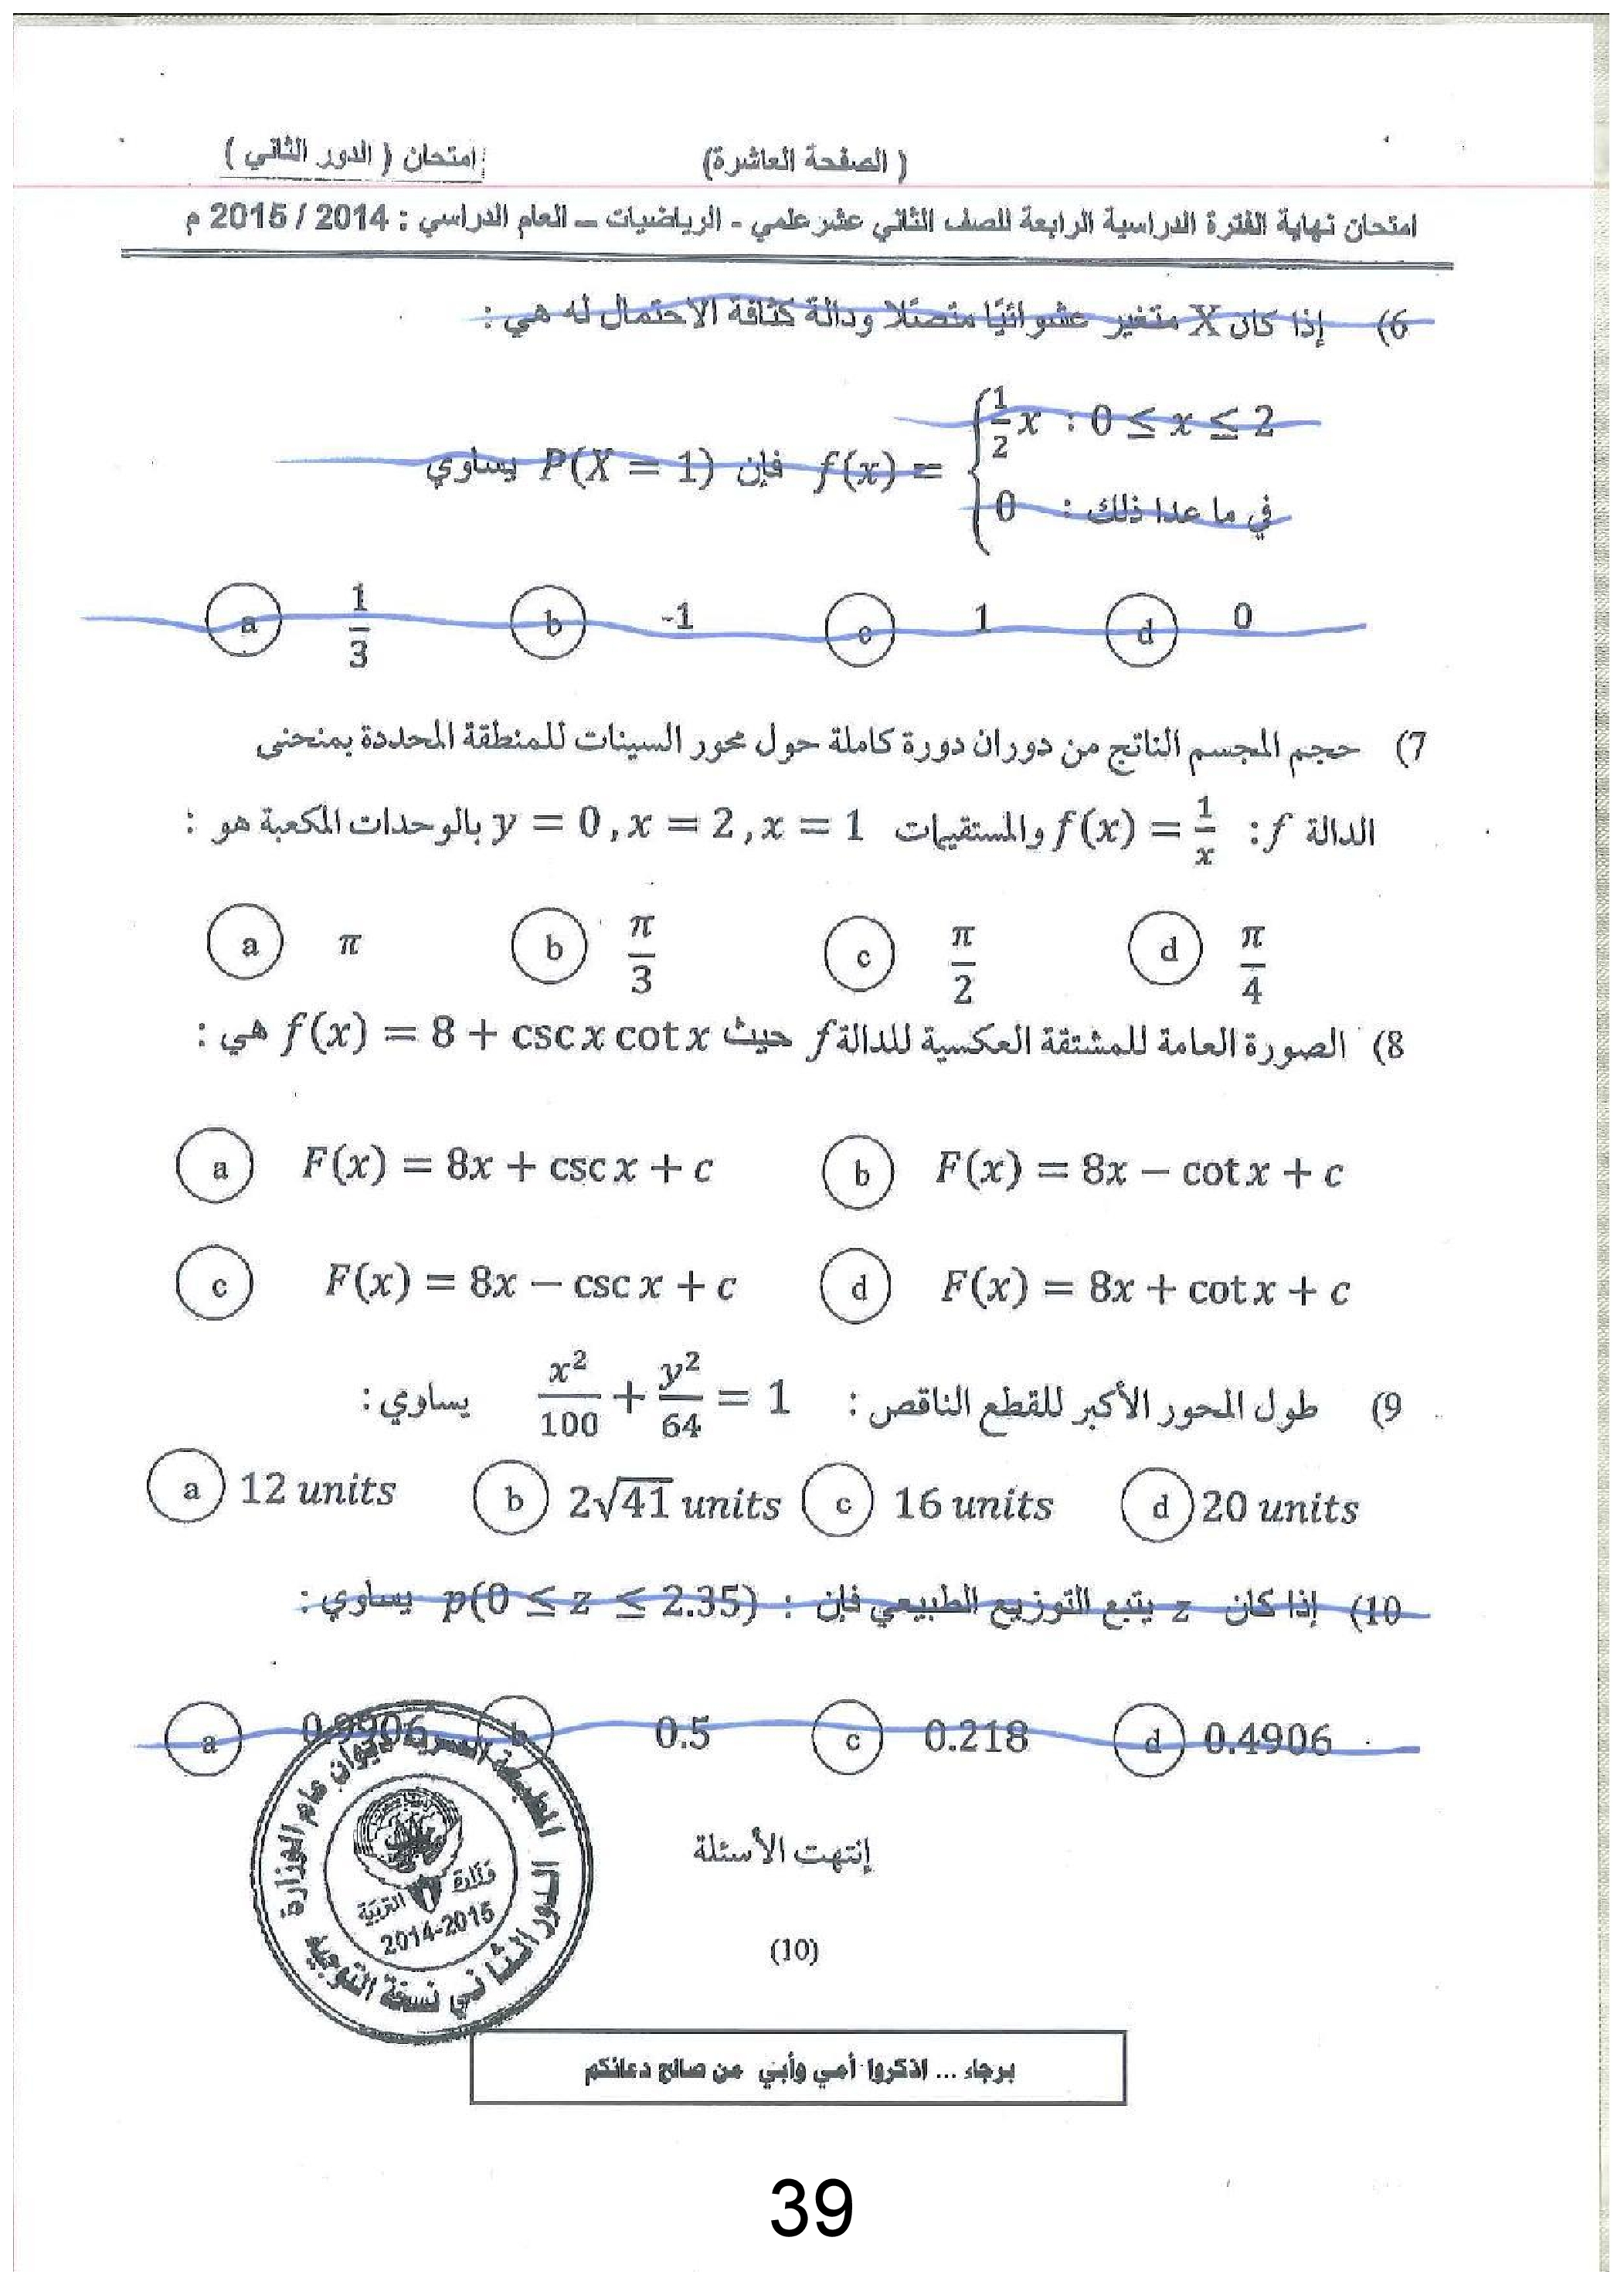 ( الصفحة العاشرة) امتحان ( الدور الثاني )
امتحان نهاية الفترة الدراسية الرابعة للصف الثاني عشر علمي - الرياضيات – العام الدراسي : 2014 / 2015 م
6) إذا كان X متغير عشوائيًا متصلًا ودالة كثافة الاحتمال له هي :
f(x) = { 1/2 x : 0 ≤ x ≤ 2
0 : في ما عدا ذلك
فإن P(X = 1) يساوي
a 1/3 b -1 c 1 d 0
7) حجم المجسم الناتج من دوران دورة كاملة حول محور السينات للمنطقة المحددة بمنحنى
الدالة f: f(x) = 1/x والمستقيمات y = 0 , x = 2 , x = 1 بالوحدات المكعبة هو :
a π b π/3 c π/2 d π/4
8) الصورة العامة للمشتقة العكسية للدالة f حيث f(x) = 8 + csc x cot x هي :
a F(x) = 8x + csc x + c b F(x) = 8x − cot x + c
c F(x) = 8x − csc x + c d F(x) = 8x + cot x + c
9) طول المحور الأكبر للقطع الناقص : x²/100 + y²/64 = 1 يساوي :
a 12 units b 2√41 units c 16 units d 20 units
10) إذا كان z يتبع التوزيع الطبيعي فإن : p(0 ≤ z ≤ 2.35) يساوي :
a 0.9906 b 0.5 c 0.218 d 0.4906
إنتهت الأسئلة
المطبعة السرية ديوان عام الوزارة
وزارة التربية
2014-2015
الدور الثاني نسخة التوجيه
(10)
برجاء ... اذكروا أمي وأبي من صالح دعائكم
39